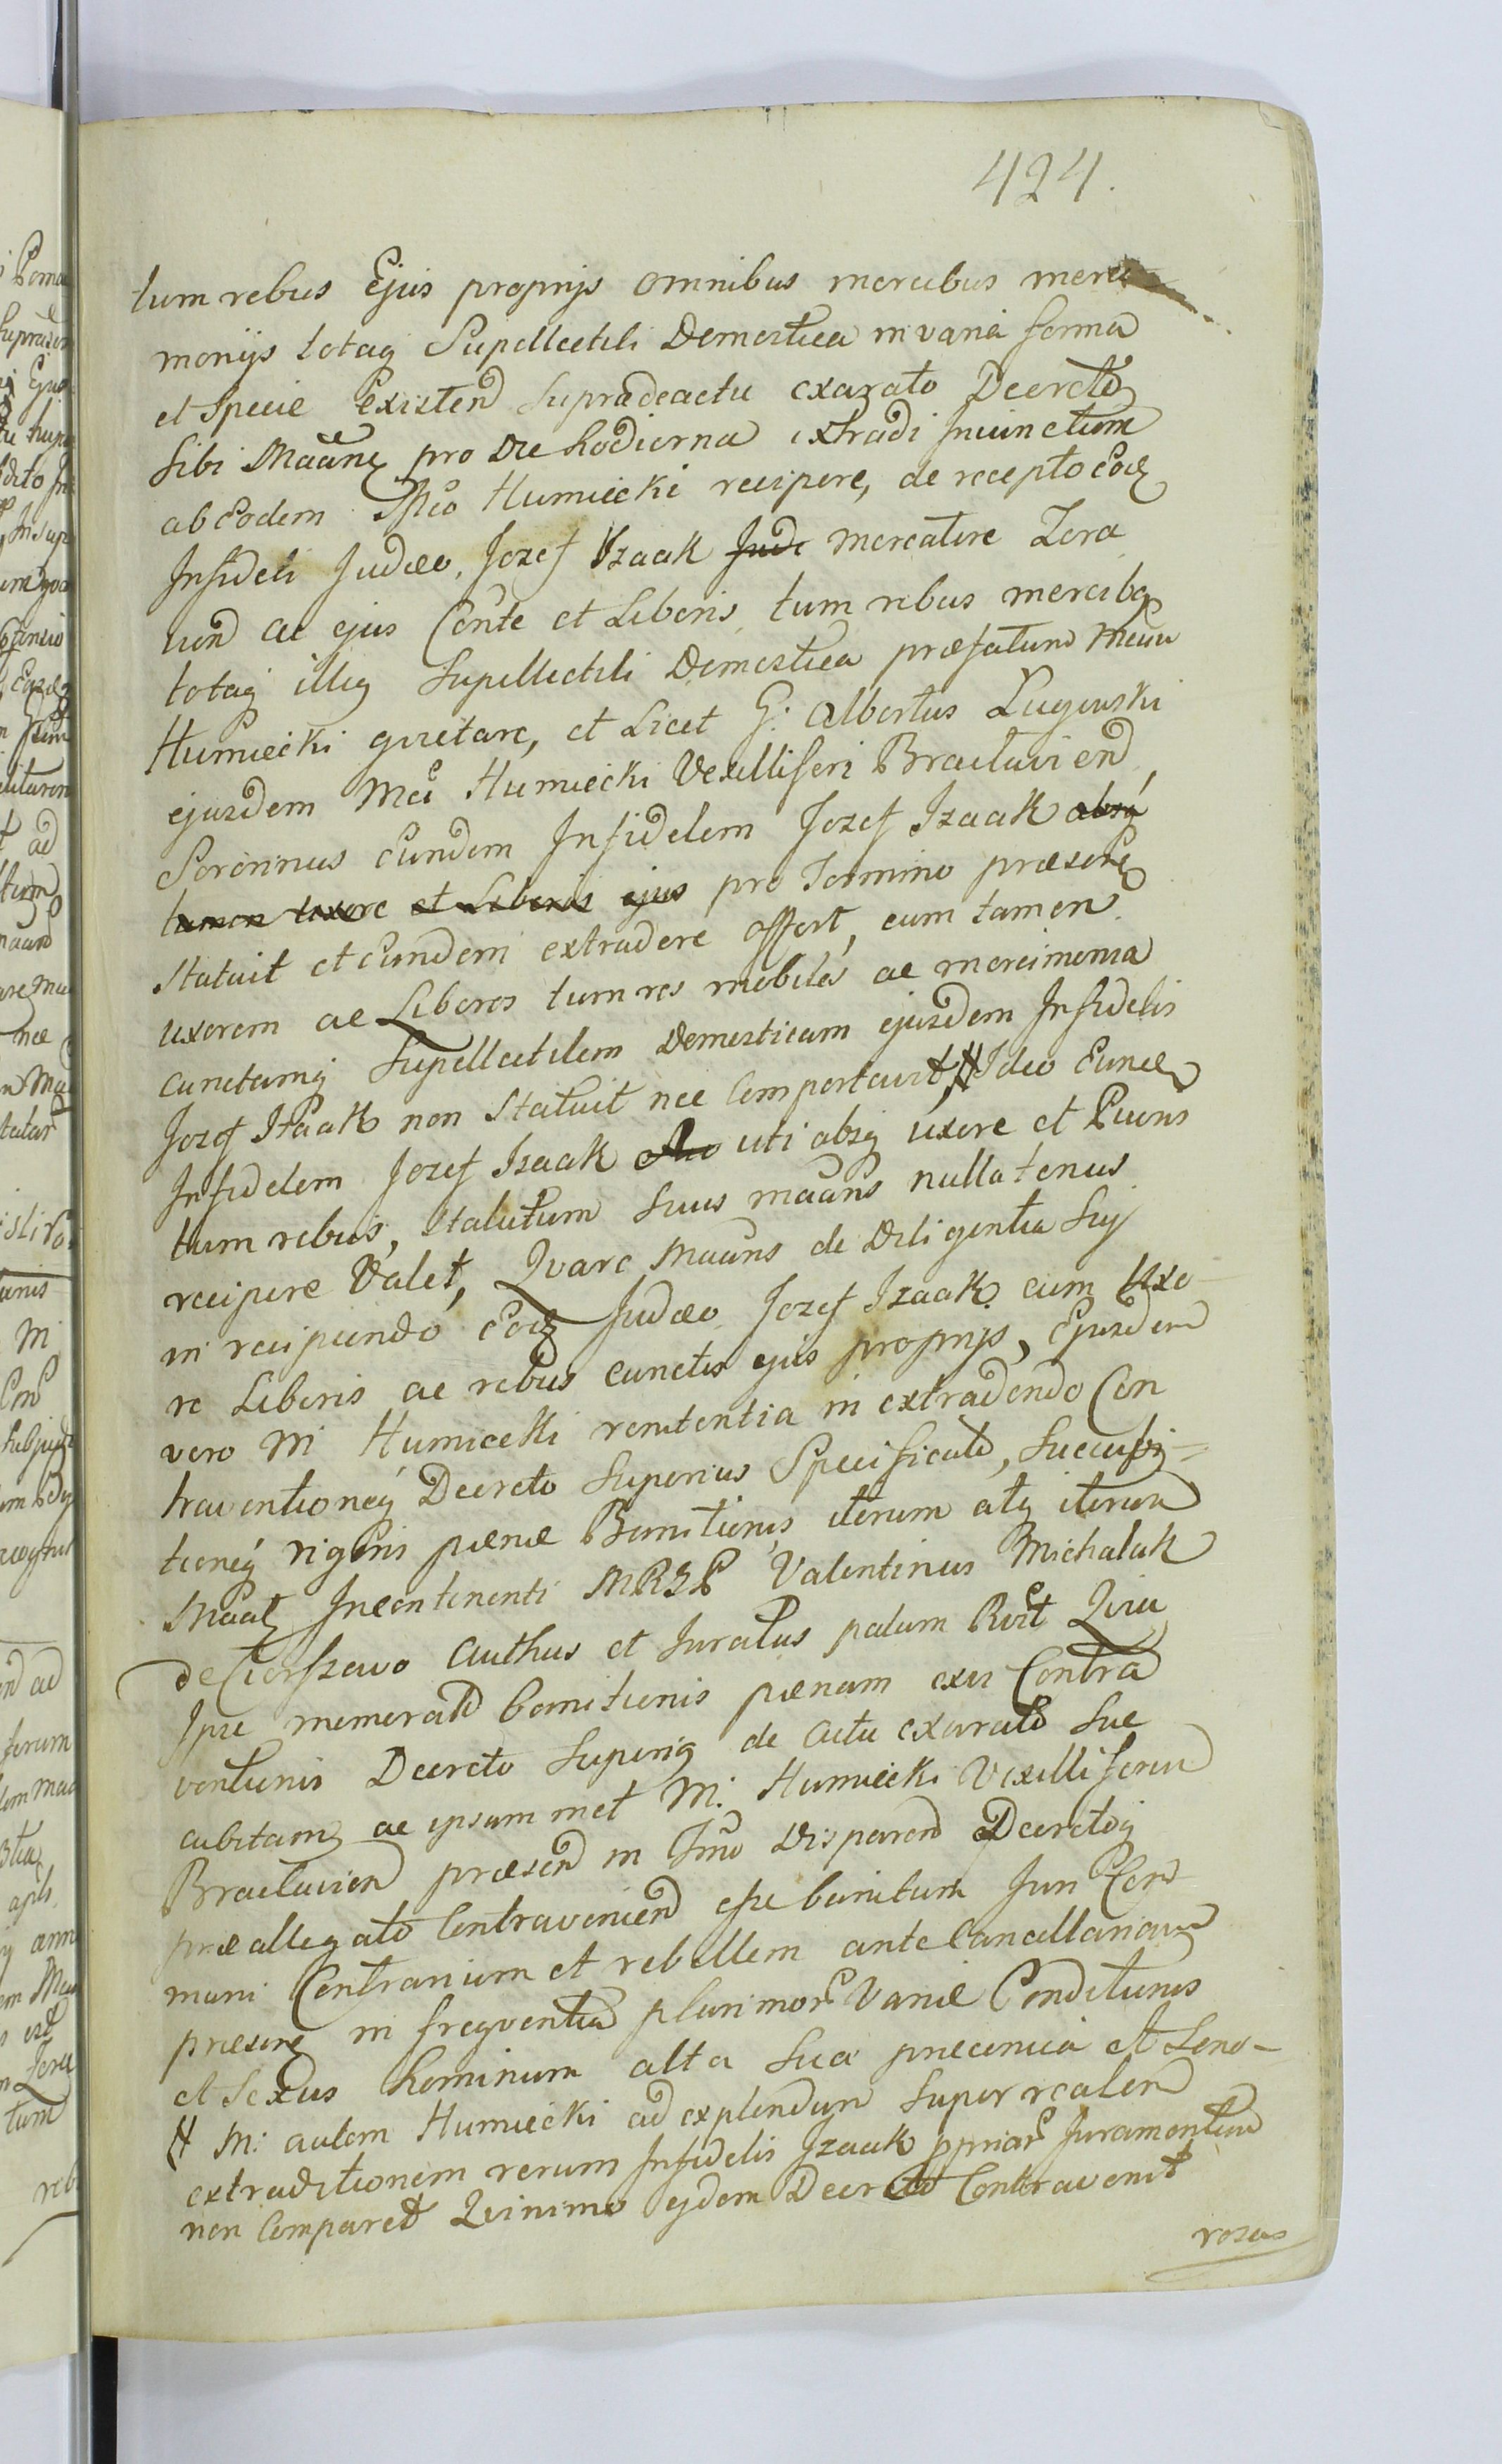 424.
tum rebus Ejus proprijs omnibus mercibus merci
monijs totaq Supellectili Domestica in varia forma
et Specie Existend supradeactu exarato Decreto
sibi Maane pro Die hodierna extradi Iniunctum
ab Eodem Mco Humiecki recipere, de recepto Eodq
Infideli Judaeo, Jozef Izaak Jude mercatore Zora
vien ac ejus Conte et Liberis, tum rebus mercibq
totaq illiq Supellectili Domestica praefatum Mcum
Humiecki quietare, et Licet G: Albertus Lugowski
ejusdem Mci Humiecki Vexilliferi Braclavien
Servinus Eundem Infidelem Jozef Izaak absq
tamen uxore et Liberis ejus pro Termino praesenq
statuit et Eundem extradere offert, cum tamen
uxorem ac Liberos tum res mobiles ac mercimonia
cunctamq Supellectilem Domesticam ejusdem Infidelis
Jozef Izaak non statuit nec Comportavit, # Ideo Eunde
Infidelem Jozef Izaak uti absq uxore et Pueris
tum rebus, statutum suus maans nullatenus
recipere Valet, Qvare Maans de Diligentia sui
in recipiendo Eodq Judaeo Jozef Izaak cum Uxo
re Liberis ac rebus cunctis ejus proprijs, Ejusdem
vero M Humiecki renitentia in extradendo Con
traventioneq Decreto Superius Specificato, succubi=
tioneq vigoris paenae Banitionis iterum atq iterum
Maat Incontenenti MRGP Valentinus Michalak
de Ciorszewo Authus et Juratus palam Rvit Qvia
Ipse memorat banitionis paenam exvi Contra
ventionis Decreto superiq de actu exarato suc
cubitamq ac ipsum met M: Humiecki Vexilliferum
Braclavien praesen in Tmo Disparen Decretoq
praeallegato Contravenien esse banitum Juri Com
muni Contrarium et rebellem ante Cancellariam
praesenq in freqventia plurimor Variae Conditionis
et Sexus hominum alta sua praeconica et Sono-
# M: autem Humiecki ad explendum super realem
extraditionem rerum Infidelis Izaak ppriar Juramentum
non Comparet Qvinimo ejdem Decreto Contravenit
rosas